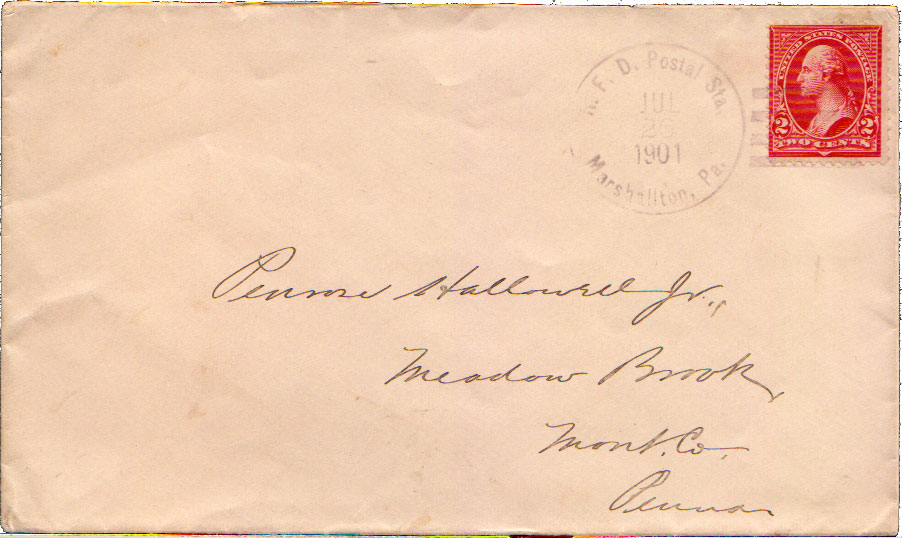 R. F. D. Postal Sta.
JUL
26
1901
Marshallton, Pa.
UNITED STATES POSTAGE
2 2
TWO CENTS
Penrose Hallowell Jr.,
Meadow Brook,
Mont. Co.
Penna